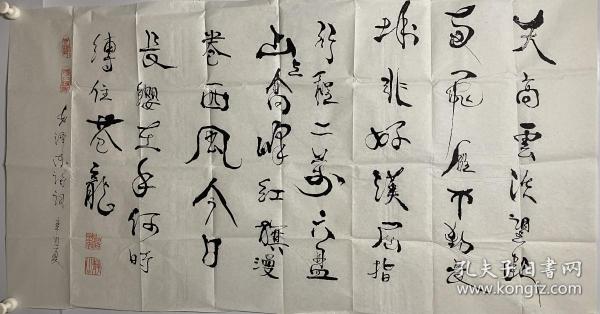 天高雲淡望斷
南飛雁不到長
城非好漢屈指
行程二萬六盤
山上高峰紅旗漫
卷西風今日
長纓在手何時
縛住苍龍
毛澤东詩詞
孔夫子旧书网
www.kongfz.com